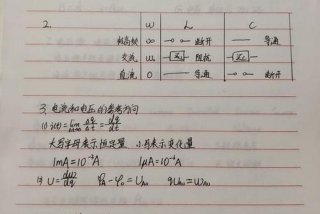 2. ω L C
极高频 ∞ 断开 导通
交流 ω X_L 阻抗 X_C
直流 0 导通 断开
3. 电流和电压的参考方向
(1) i(t)=lim Δq/Δt = dq/dt
大写字母表示恒定量 小写表示变化量
1mA=10⁻³A 1μA=10⁻⁶A
U=dw/dq φa-φb=Uab qUab=Wab